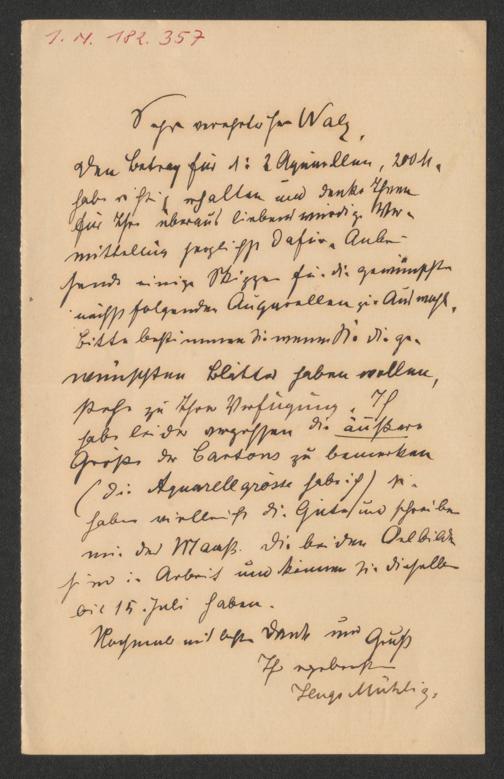 1. N. 182.357
Sehr verehrter Herr Walz,
Den Betrag für d: 2 Aquarellen, 200 M.
habe richtig erhalten und danke Ihnen
für Ihre überaus liebenswürdige Ver-
mittelung herzlichst dafür. Anbei
sende einige Skizzen für die gewünschten
nächstfolgenden Aquarellen zur Auswahl.
Bitte bestimmen Sie wenn Sie die ge-
wünschten Blätter haben wollen,
stehe zu Ihrer Verfügung. Ich
habe leider vergessen die äußere
Größe der Cartons zu bemerken
(die Aquarellgrösse habe ich) Sie
haben vielleicht die Güte und schreiben
mir das Maaß. Die beiden Oelbilder
sind in Arbeit und können Sie dieselben
bis 15. Juli haben.
Nochmals mit bestem Dank und Gruß
Ihr ergebenster
Hugo Mühlig.